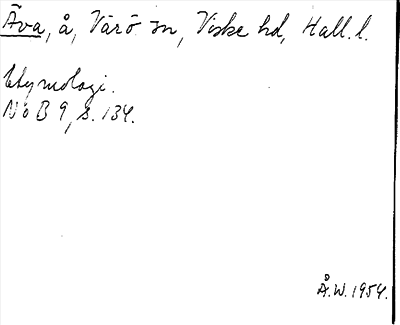 Äva, å, Värö sn, Viske hd, Hall. l.
Etymologi.
NoB 9, s. 134.
Å.W. 1954.